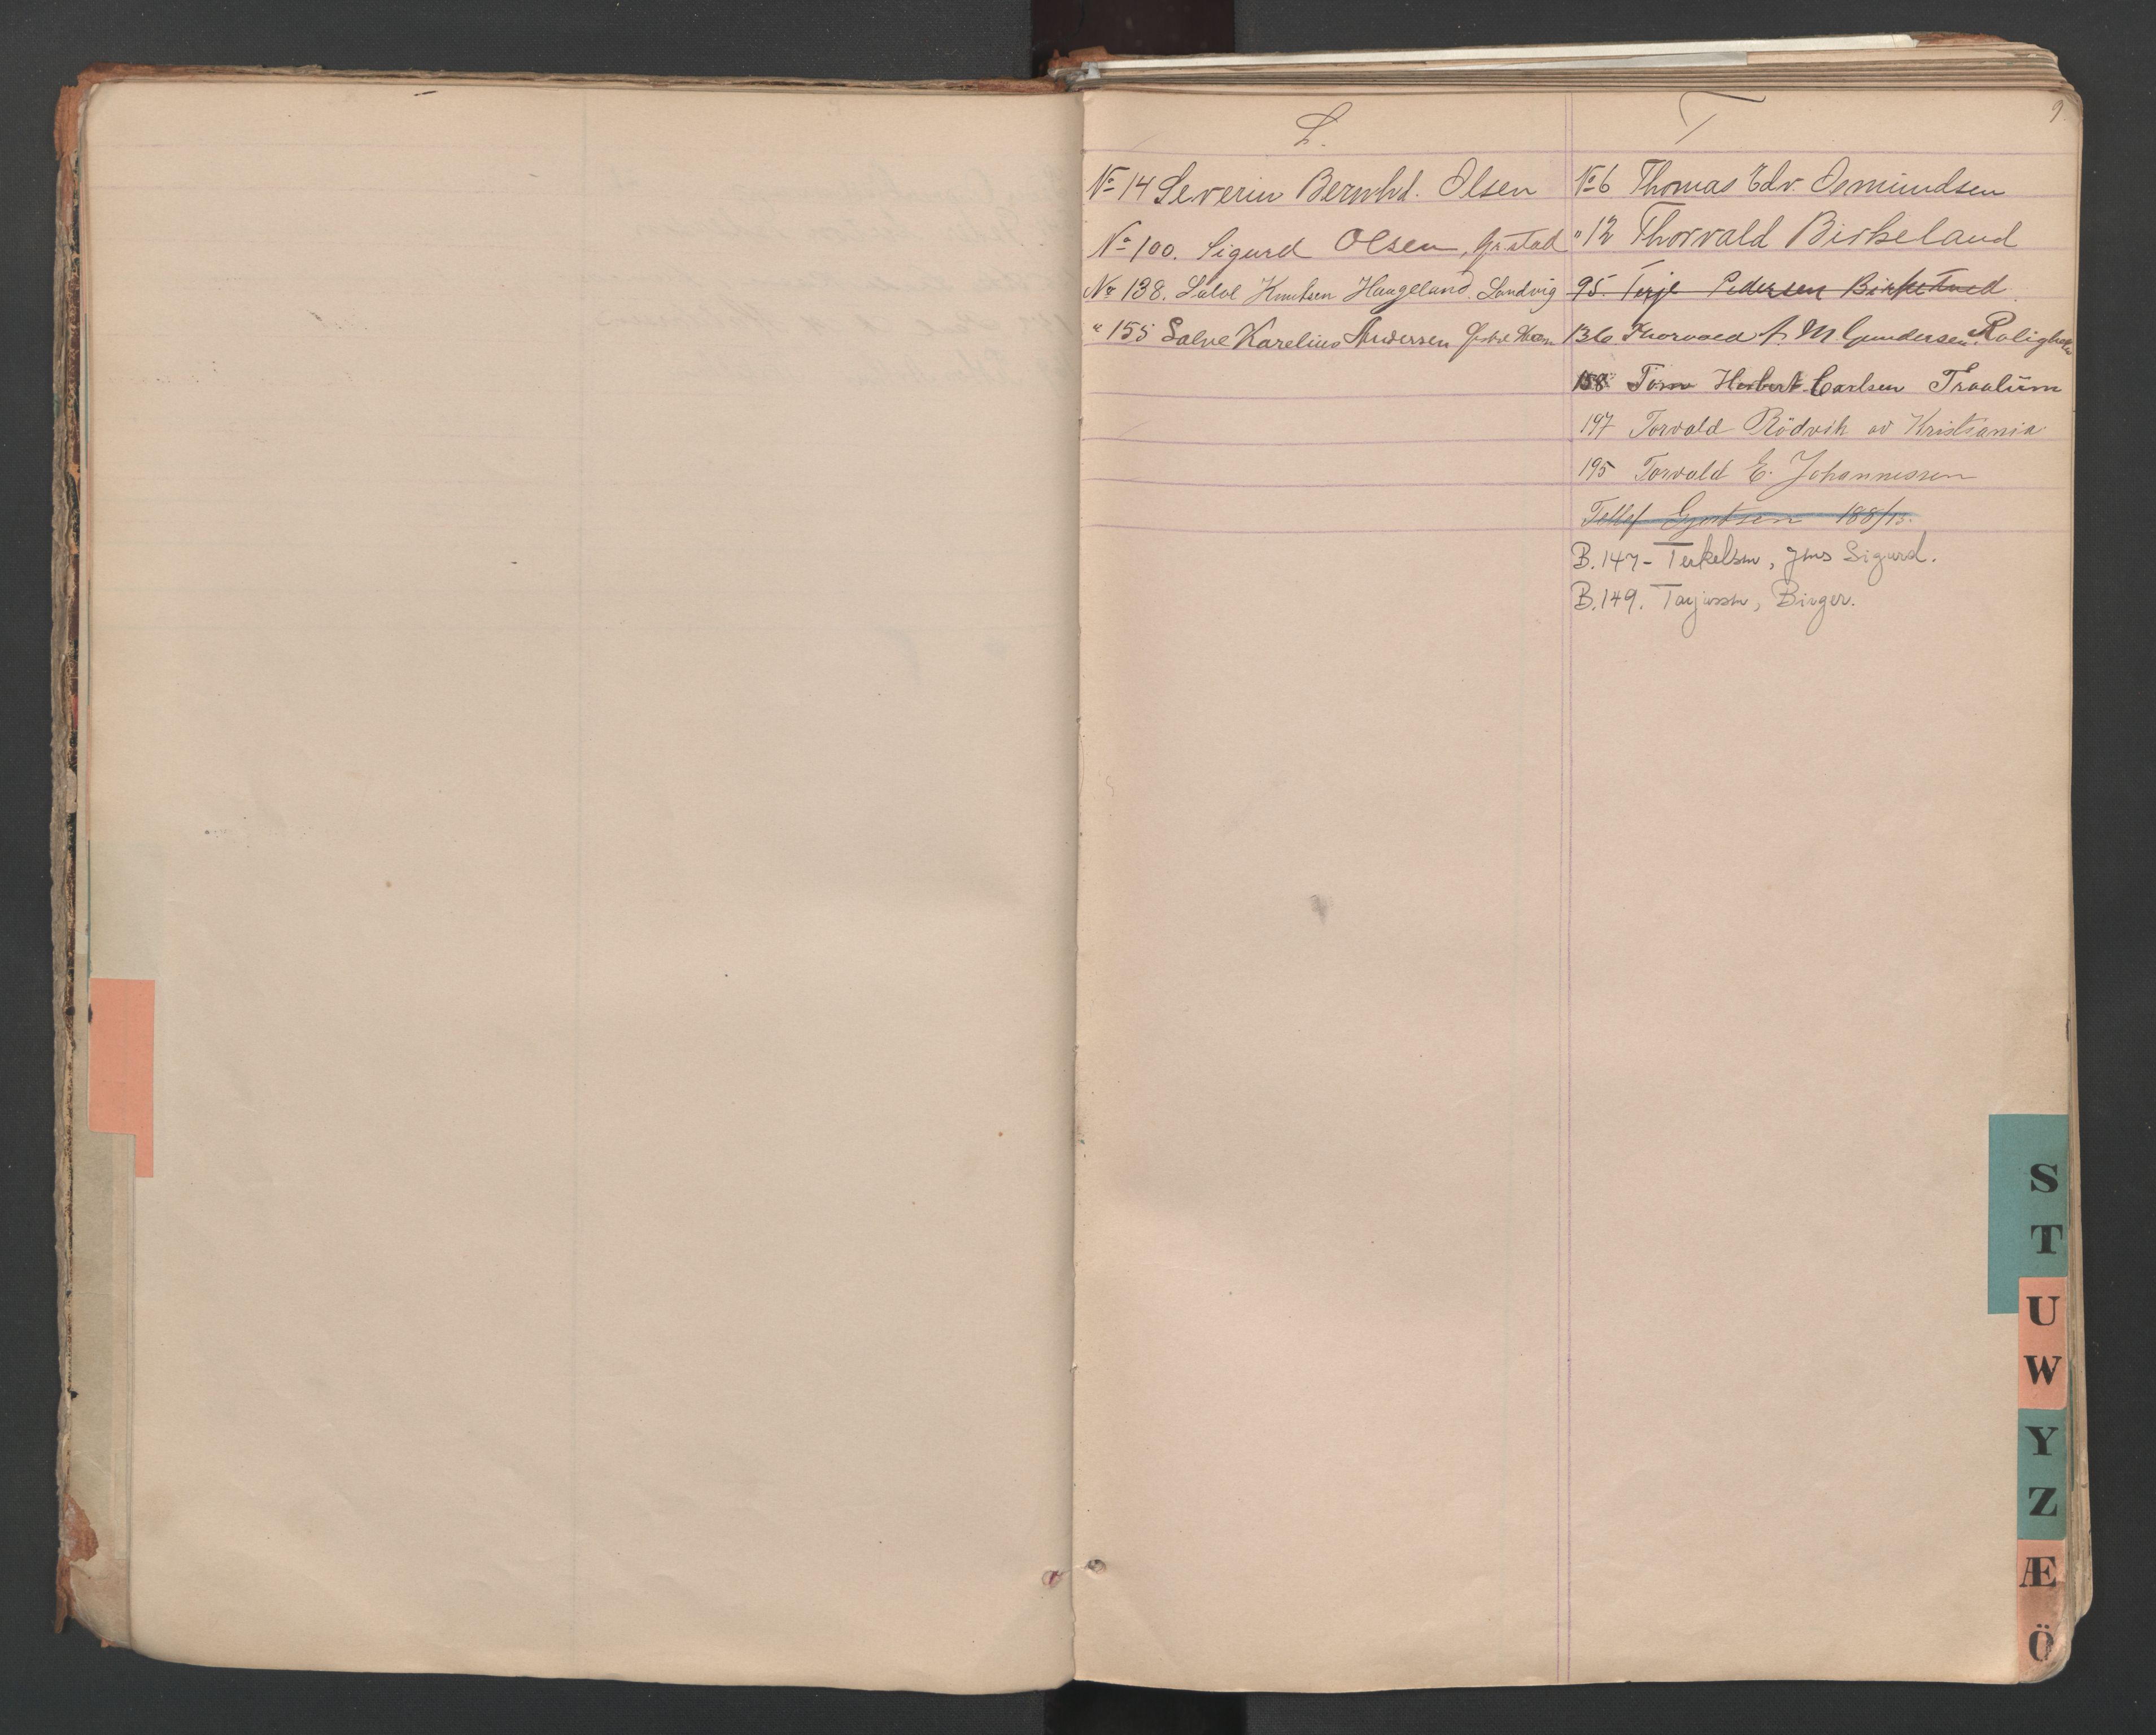 S.
No 14 Severin Bernhd. Olsen
No 100. Sigurd Olsen, Grstad
No 138. Salve Knutsen Haugelund. Landvig
" 155 Salve Karelius Andersen
T
9
No 6 Thomas Edv. Osmundsen
" 12 Thorvald Birkeland
95. Terje Pedersen Birketved
136 Thorvald A. M. Gundersen. Rolighed
158 Tom Herbert Carlsen Traalüm
197 Torvald Rödvik av Kristiania
195 Torvald E. Johannessen
Tellef Gjertsen 188/13.
B.147- Terkelsen, Jens Sigurd.
B.149. Tarjussen, Birger.
S
T
U
W
Y
Z
Æ
Ö